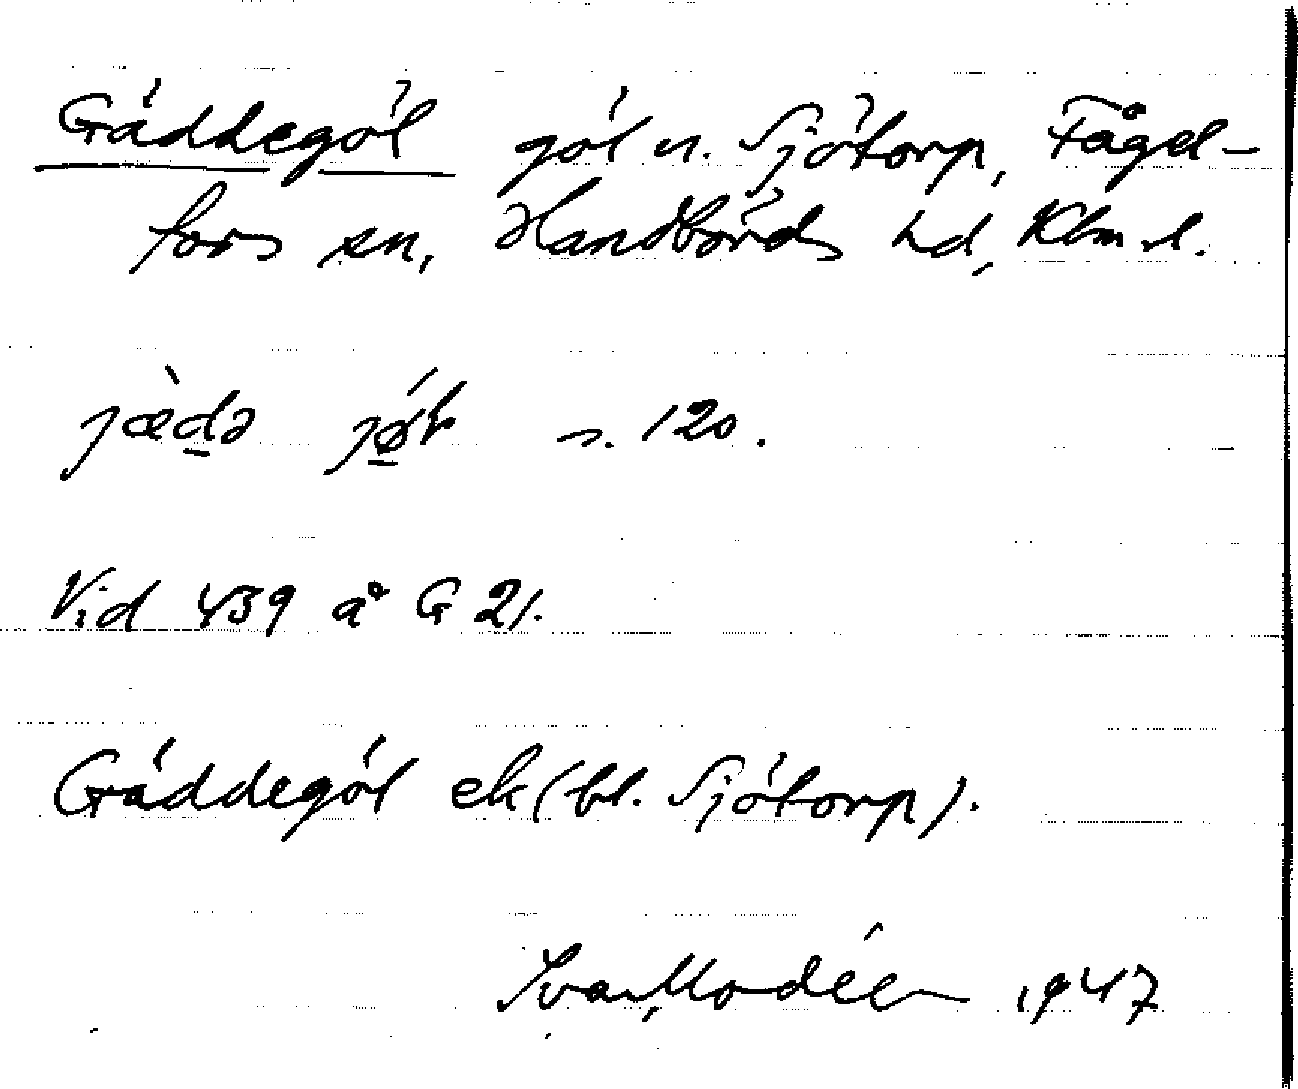 Gäddegöl göl u. Sjötorp, Fågel-
fors sn, Handbörds hd, Klm. l.
jæ̀də jø̀l s. 120.
Vid 439 å G 21.
Gäddegöl ek (bl. Sjötorp).
Ivar Modéer 1947